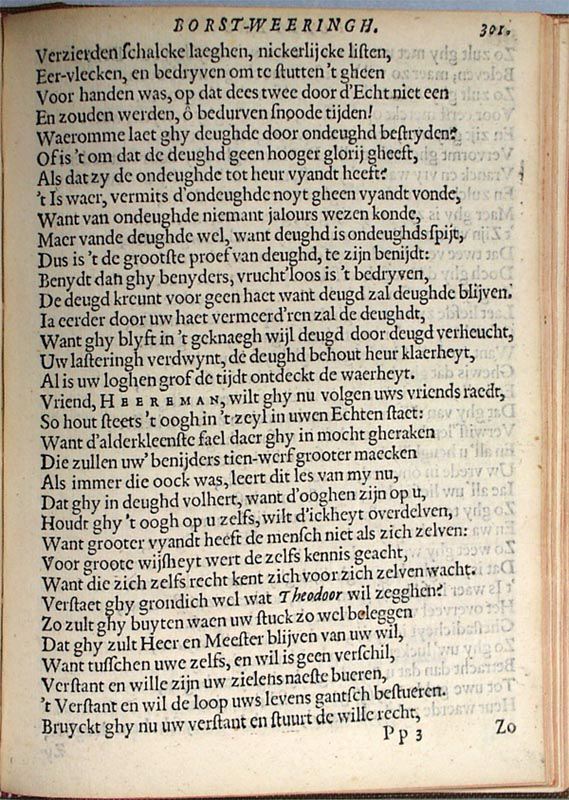 BORST-WEERINGH. 301.
Verzierden schalcke laeghen, nickerlijcke listen,
Eer-vlecken, en bedryven om te stutten 't gheen
Voor handen was, op dat dees twee door d'Echt niet een
En zouden werden, ô bedurven snoode tijden!
Waeromme laet ghy deughde door ondeughd bestryden?
Of is 't om dat de deughd geen hooger glorij gheeft,
Als dat zy de ondeughde tot heur vyandt heeft?
't Is waer, vermits d'ondeughde noyt gheen vyandt vonde,
Want van ondeughde niemant jalours wezen konde,
Maer vande deughde wel, want deughd is ondeughds spijt,
Dus is 't de grootste proef van deughd, te zijn benijdt:
Benydt dan ghy benyders, vrucht'loos is 't bedryven,
De deugd kreunt voor geen haet want deugd zal deughde blijven.
Ia eerder door uw haet vermeerd'ren zal de deughdt,
Want ghy blyft in 't geknaegh wijl deugd door deugd verheucht,
Uw lasteringh verdwynt, de deughd behout heur klaerheyt,
Al is uw loghen grof de tijdt ontdeckt de waerheyt.
Vriend, HEEREMAN, wilt ghy nu volgen uws vriends raedt,
So hout steets 't oogh in 't zeyl in uwen Echten staet:
Want d'alderkleenste fael daer ghy in mocht gheraken
Die zullen uw' benijders tien-werf grooter maecken
Als immer die oock was, leert dit les van my nu,
Dat ghy in deughd volhert, want d'ooghen zijn op u,
Houdt ghy 't oogh op u zelfs, wilt d'ickheyt overdelven,
Want grooter vyandt heeft de mensch niet als zich zelven:
Voor groote wijsheyt wert de zelfs kennis geacht,
Want die zich zelfs recht kent zich voor zich zelven wacht.
Verstaet ghy grondich wel wat Theodoor wil zegghen?
Zo zult ghy buyten waen uw stuck zo wel beleggen
Dat ghy zult Heer en Meester blijven van uw wil,
Want tusschen uwe zelfs, en wil is geen verschil,
Verstant en wille zijn uw zielens naeste bueren,
't Verstant en wil de loop uws levens gantsch bestueren.
Bruyckt ghy nu uw verstant en stuurt de wille recht,
Pp 3 Zo